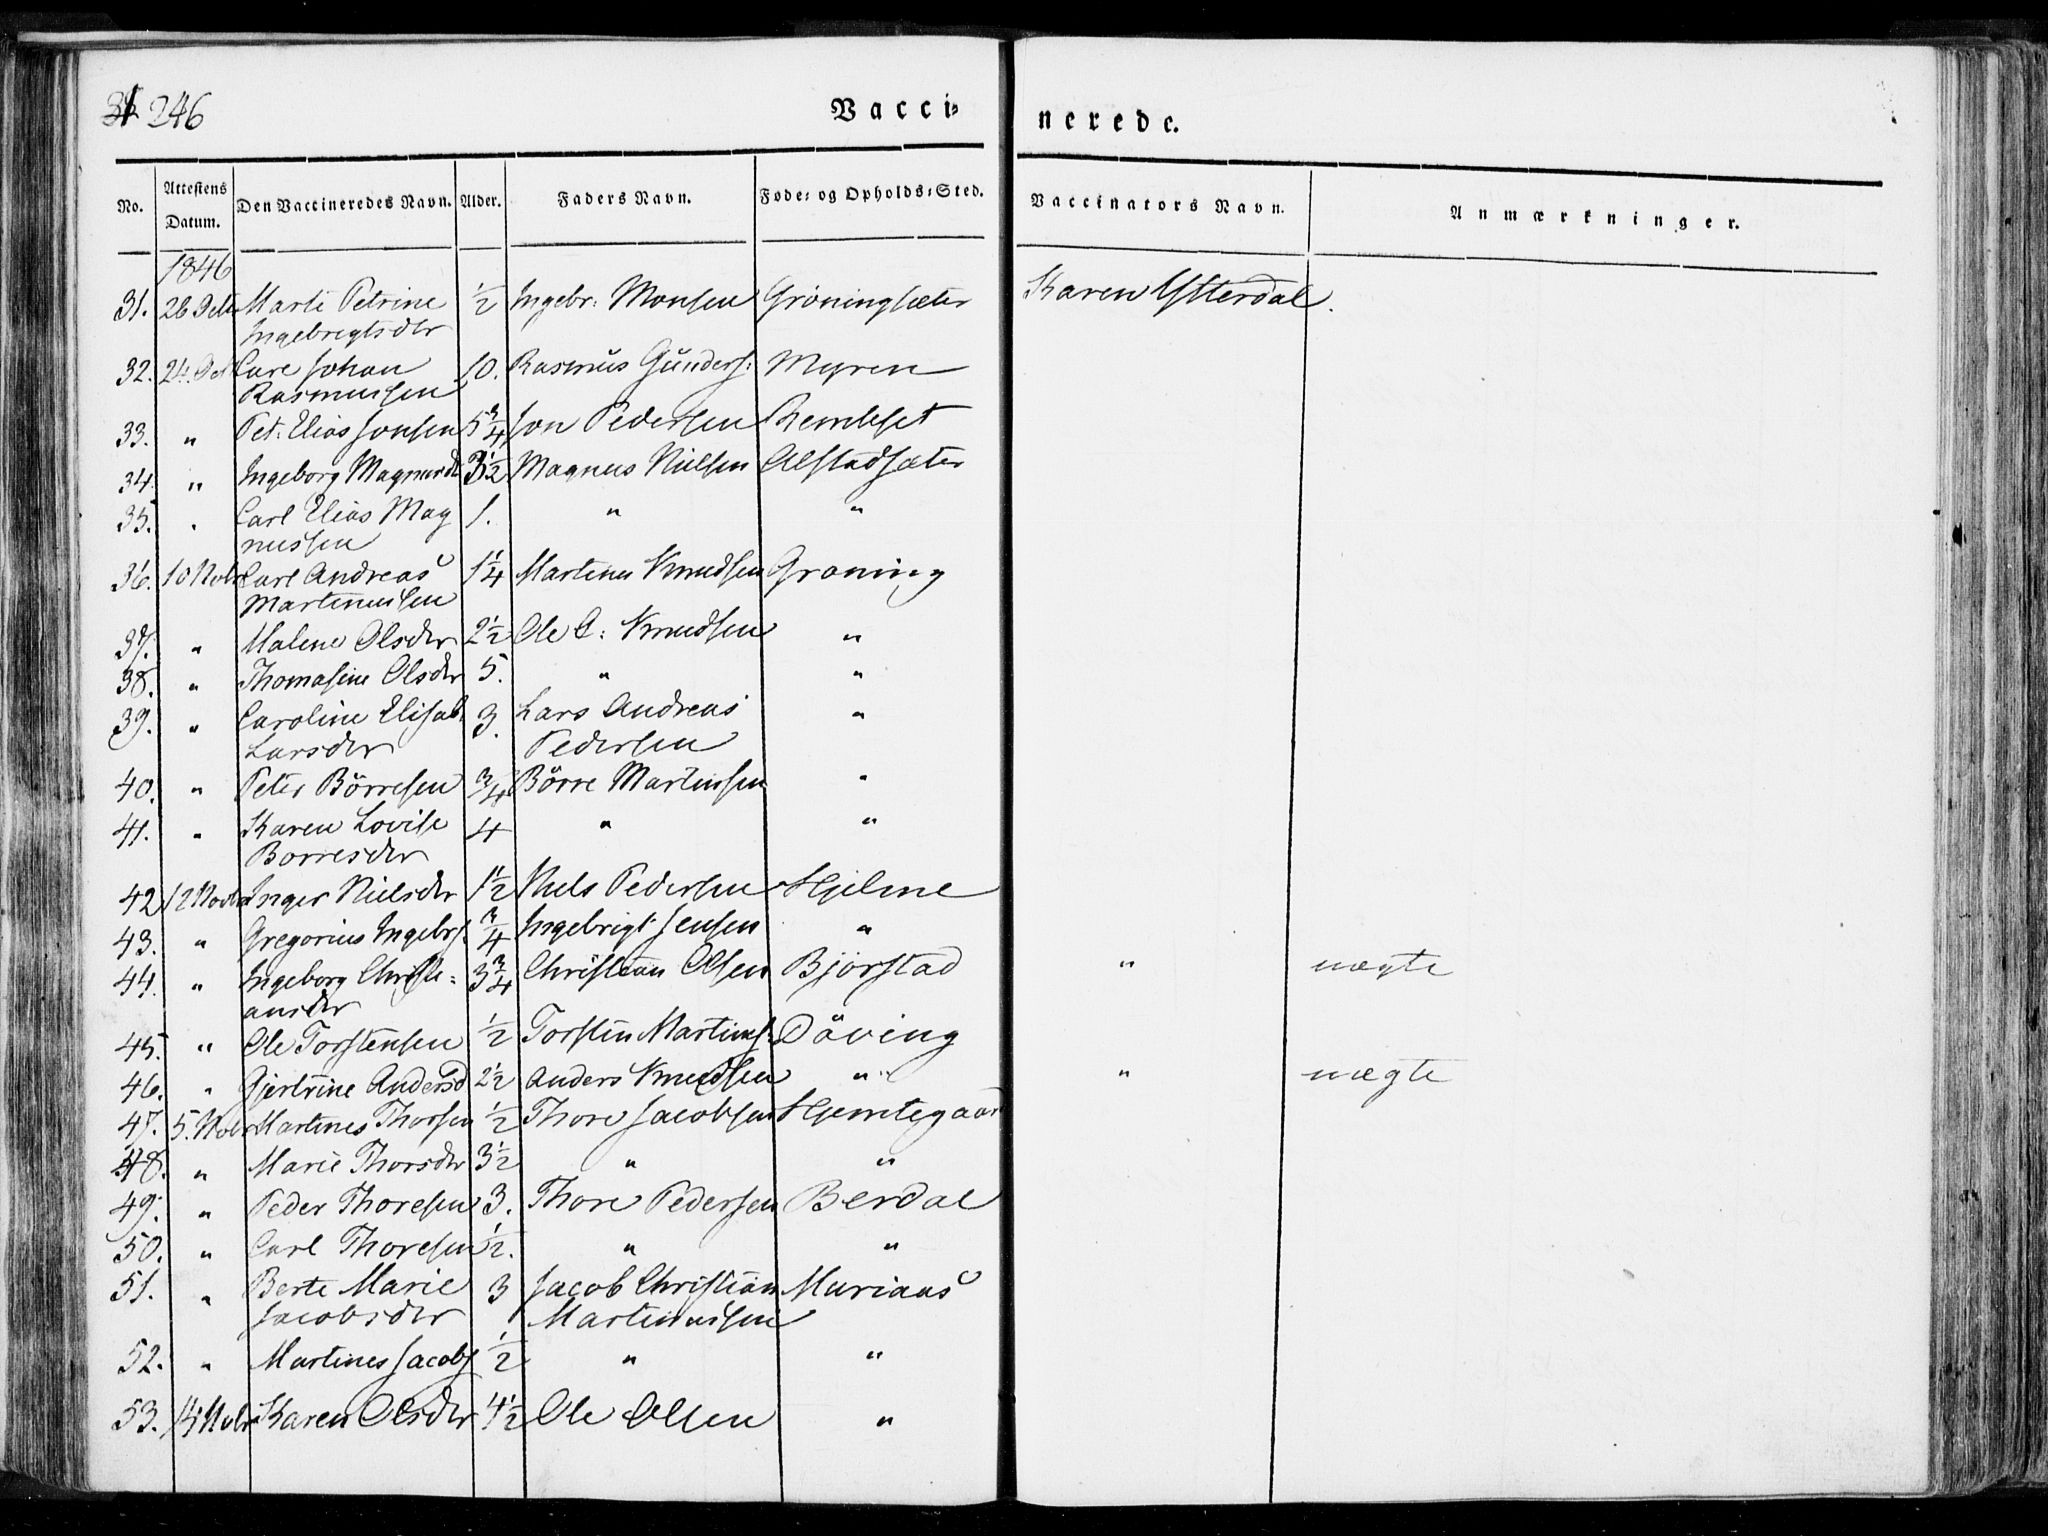 246 Vacci- nerede.
No. Attestens Datum. Den Vaccineredes Navn. Alder. Faders Navn. Føde- og Opholds-Sted. Vaccinators Navn. Anmærkninger.
1846
31. 28 Octbr Marte Petrine ½ Ingebr: Monsen Gröningsæter Karen Ytterdal.
Ingebregtsdtr
32. 24. Oct Carl Johan 10. Rasmus Gunders: Myren
Rasmussen
33. " Pet: Elias Jonsen 5¾ Jon Pedersen Remleset
34. " Ingeborg Magnusdt 3½ Magnus Nielsen Alstadsæter
35. " Carl Elias Mag 1. " "
nussen
36. 10 Novbr Carl Andreas 1¼ Martinus Knudsen Gröning
Martinussen
37. " Malene Olsdtr 2½ Ole A: Knudsen "
38. " Thomasine Olsdtr 5. " "
39. " Caroline Elisab. 3. Lars Andreas "
Larsdtr Pedersen
40. " Peter Börresen ¾ Börre Martinsen "
41. " Karen Lovise 4 " "
Borresdtr
42 12 Novbr Inger Nielsdtr 1½ Niels Pedersen Hjelme
43. " Gregorius Ingebrs. ¾ Ingebrigt Jensen "
44. " Ingeborg Christi- 3¾ Christian Olsen Bjorstad " nægte
ansdtr
45. " Ole Torstensen ½ Torsten Martins: Döving
46. " Gjertrine Andersd 2½ Anders Knudsen " " nægte
47. 5. Novbr Martines Thorsen ½ Thore Jacobsen Hjemtegaar
48. " Marie Thorsdtr 3½ " "
49. " Peder Thoresen 3. Thore Pedersen Berdal
50. " Carl Thoresen ½. " "
51. " Berte Marie 3 Jacob Christian Muriaas
Jacobsdtr Martinussen
52. " Martines Jacobs ½ " "
53. 14 Novbr Karen Olsdtr 4½ Ole Olsen "